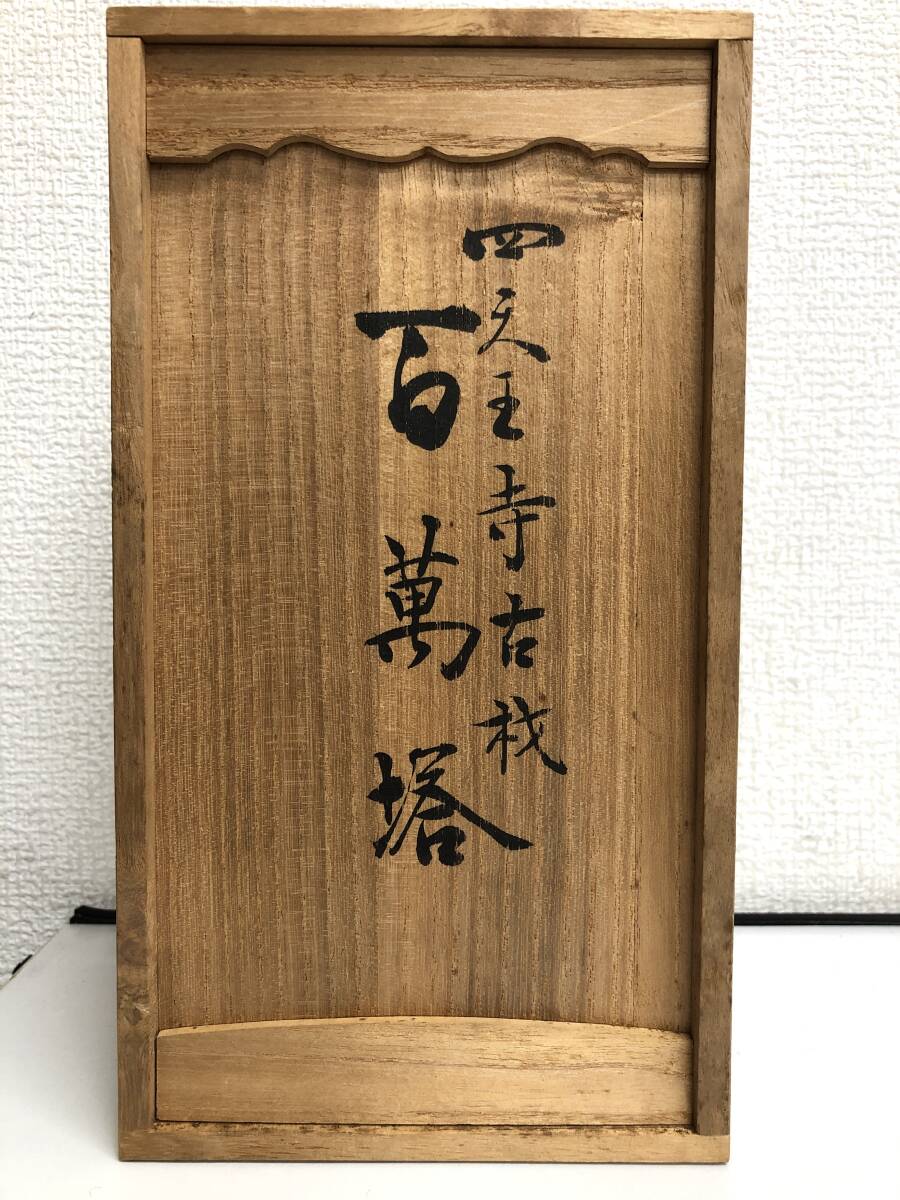 四天王寺古材
百萬塔